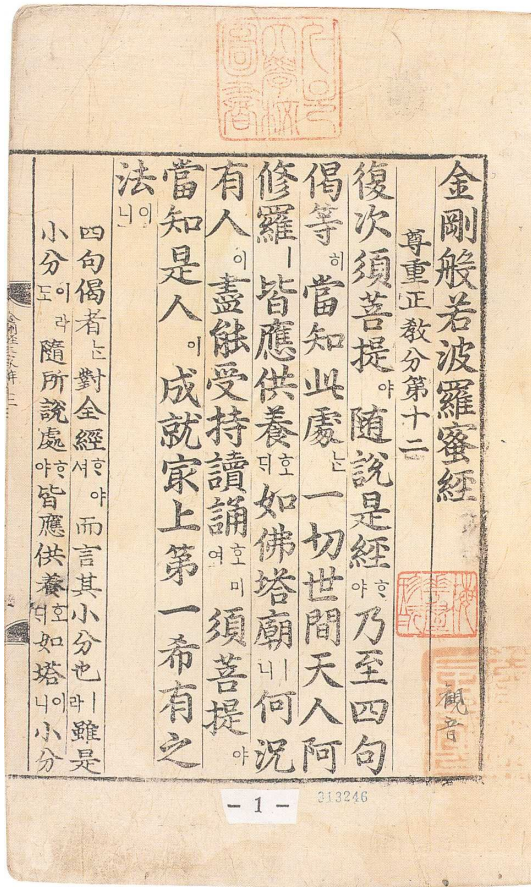 金剛般若波羅蜜經
尊重正教分第十二
復次須菩提야 随說是經ᄒᆞ야 乃至四句
偈等히 當知此處ᄂᆞᆫ 一切世間天人阿
修羅ㅣ 皆應供養호ᄃᆡ 如佛塔廟ㅣ니 何況
有人이 盡能受持讀誦호미여 須菩提야
當知是人이 成就冣上第一希有之
法이니
四句偈者ᄂᆞᆫ 對全經ᄒᆞ야셔 而言其小分也ㅣ라 雖是
小分이라도 隨所說處ᄒᆞ야 皆應供養호ᄃᆡ 如塔이니 小分
觀音
- 1 -
313246